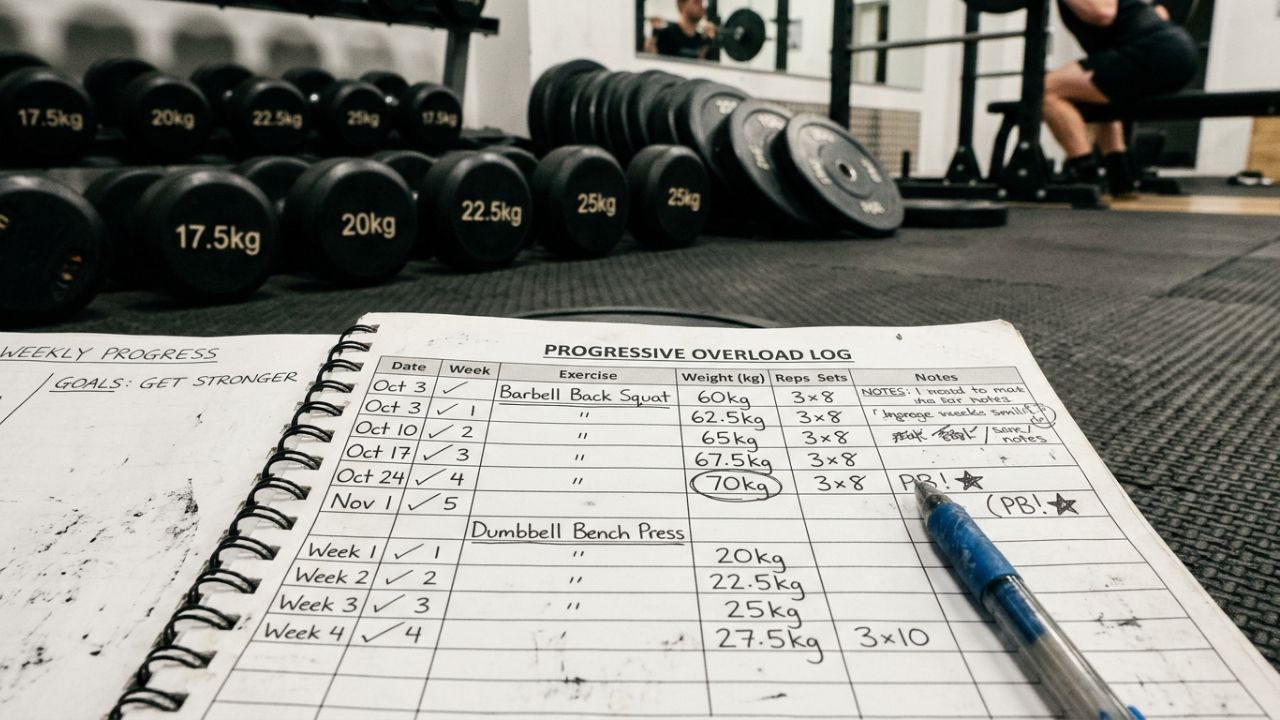 17.5kg 20kg 22.5kg 25kg 17.5kg
17.5kg 20kg 22.5kg 25kg 25kg
WEEKLY PROGRESS
GOALS: GET STRONGER
PROGRESSIVE OVERLOAD LOG
Date Week Exercise Weight (kg) Reps Sets Notes
Oct 3 ✓ Barbell Back Squat 60kg 3×8 NOTES: I to
notes
Oct 3 ✓ 1 " 62.5kg 3×8
Oct 10 ✓ 2 " 65kg 3×8 notes
Oct 17 ✓ 3 " 67.5kg 3×8
Oct 24 ✓ 4 " 70kg 3×8 PB! ★
Nov 1 ✓ 5 (PB! ★
Dumbbell Bench Press
Week 1 ✓ 1 " 20kg
Week 2 ✓ 2 " 22.5kg
Week 3 ✓ 3 " 25kg
Week 4 ✓ 4 " 27.5kg 3×10